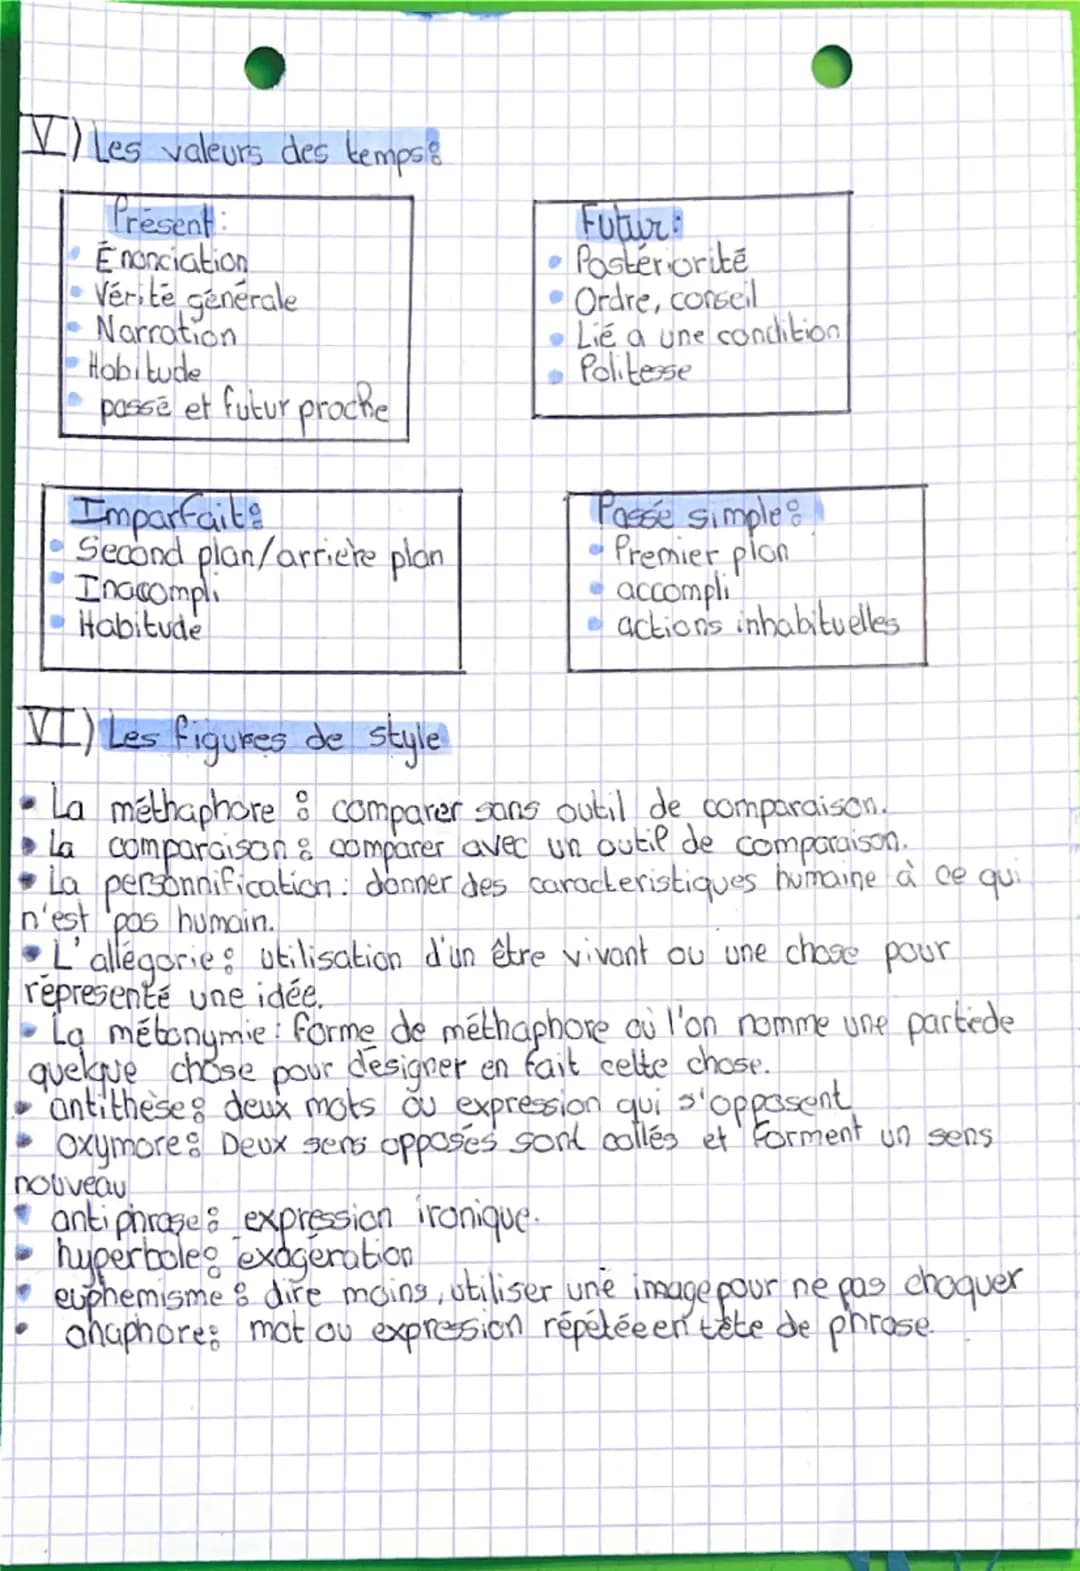 V) Les valeurs des temps :
Présent :
• Énonciation
• Vérité générale
• Narration
• Habitude
• passé et futur proche
Futur :
• Postériorité
• Ordre, conseil
• Lié a une condition
• Politesse
Imparfait :
• Second plan/arrière plan
• Inaccompli
• Habitude
Passé simple :
• Premier plan
• accompli
• actions inhabituelles
VI) Les figures de style
• La méthaphore : comparer sans outil de comparaison.
• La comparaison : comparer avec un outil de comparaison.
• La personnification : donner des caracteristiques humaine à ce qui
n'est pas humain.
• L'allégorie : utilisation d'un être vivant ou une chose pour
réprésenté une idée.
• La métonymie : forme de méthaphore où l'on nomme une partie de
quelque chose pour désigner en fait cette chose.
• antithèse : deux mots ou expression qui s'opposent
• oxymore : Deux sens opposés sont collés et forment un sens
nouveau
• antiphrase : expression ironique.
• hyperbole : exagération
• euphemisme : dire moins, utiliser une image pour ne pas choquer
• anaphore : mot ou expression répétée en tête de phrase.